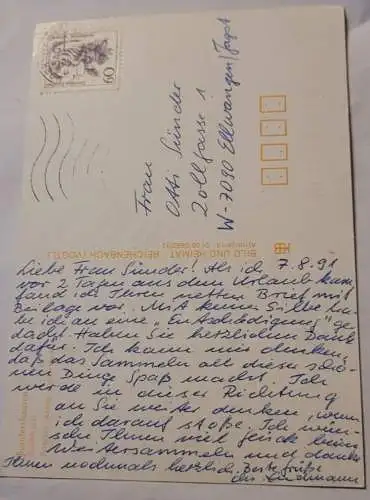 60
Frau
Otti Sünder
Zollgasse 1
W-7090 Ellwangen/Jagst
BILD UND HEIMAT REICHENBACH (VOGTL)
7.8.91
Liebe Frau Sünder! Als ich
vor 2 Tagen aus dem Urlaub kam,
fand ich Ihren netten Brief mit
Beilage vor. Mit keiner Silbe ha-
be ich an eine "Entschädigung" ge-
dacht. Haben Sie herzlichen Dank
dafür. Ich kann mir denken,
daß das Sammeln all dieser schö-
nen Dinge Spaß macht. Ich
werde in dieser Richtung
an Sie weiter denken, wenn
ich darauf stoße. Ich wün-
sche Ihnen viel Freude beim
Weitersammeln und danke
Ihnen nochmals herzlich. Beste Grüße